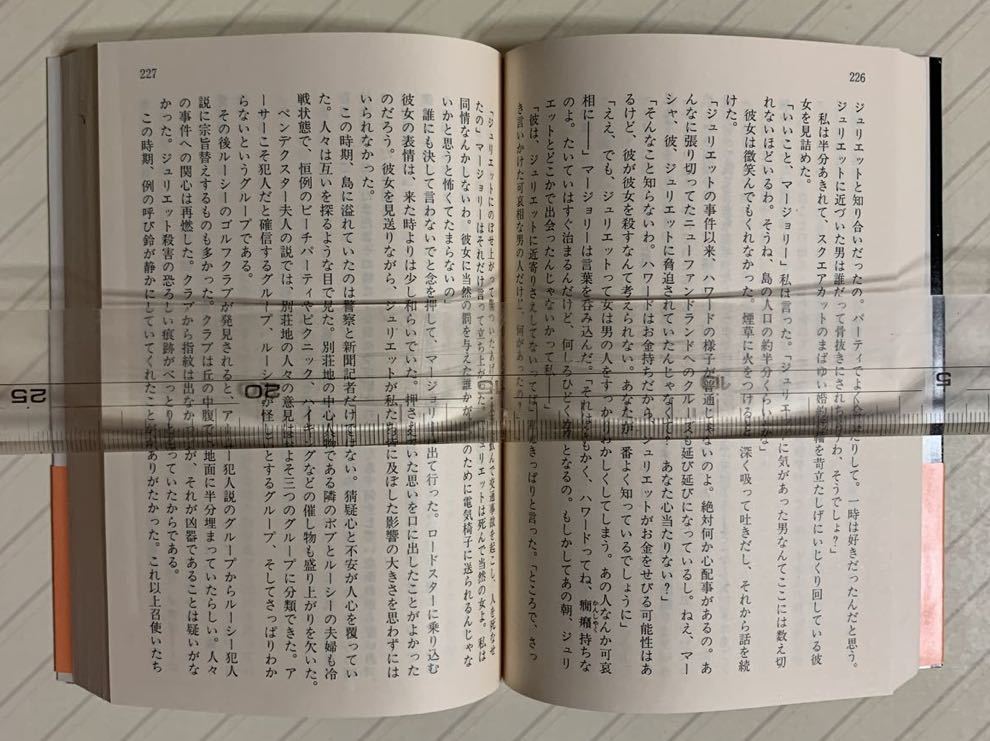 226
ジュリエットと知り合いだったの。パーティでよく
たりして。一時は好きだったんだと思う。
ジュリエットに近づいた男は誰だって骨抜きにされちゃうわ、そうでしょ？」
私は半分あきれて、スクエアカットのまばゆい婚約指輪を苛立たしげにいじくり回している彼
女を見詰めた。
「いいこと、マージョリー」私は言った。「ジュリエ
に気があった男なんてここには数え切
れないほどいるわ。そうね、島の人口の約半分くらいかな」
彼女は微笑んでもくれなかった。煙草に火をつけると、深く吸って吐きだし、それから話を続
けた。
「ジュリエットの事件以来、ハワードの様子が普通じゃないのよ。絶対何か心配事があるの。あ
んなに張り切ってたニューファンドランドへのクルーズも延び延びになっているし。ねえ、マー
シャ、彼、ジュリエットに脅迫されていたんじゃなくて？　あなた心当たりない？」
「そんなこと知らないわ。ハワードはお金持ちだから、ジュリエットがお金をせびる可能性はあ
るけど、彼が彼女を殺すなんて考えられない。あなたが一番よく知っているでしょうに」
「ええ、でも、ジュリエットって女は男の人をすっかりおかしくしてしまう。あの人なんか可哀
相に――」マージョリーは言葉を呑み込んだ。「それはともかく、ハワードってね、癇癪持ちな
のよ。たいていはすぐ治まるんだけど、何しろひどく
となるの。もしかしてあの朝、ジュリ
エットとどこかで出会ったんじゃないかって私――」
「彼は、ジュリエットに近寄りさえしてないってば」私はきっぱりと言った。「ところで、さっ
き言いかけた可哀相な男の人だけど、何があったの？」
227
「ジュリエットにのぼせ上がって
交通事故を起こし、人を死なせ
たの」マージョリーはそれだけ言って立ち上が
ュリエットは死んで当然の女よ。私は
同情なんかしないわ。彼女に当然の罰を与えた誰かが、
のために電気椅子に送られるんじゃな
いかと思うと怖くてたまらないの」
誰にも決して言わないでと念を押して、マージョリーは出て行った。ロードスターに乗り込む
彼女の表情は、来た時よりは少し和らいでいた。押さえていた思いを口に出したことがよかった
のだろう。彼女を見送りながら、ジュリエットが私たち皆に及ぼした影響の大きさを思わずには
いられなかった。
この時期、島に溢れていたのは警察と新聞記者だけではない。猜疑心と不安が人心を覆ってい
た。人々は互いを探るような目で見た。別荘地の中心人物である隣のボブとルーシーの夫婦も冷
戦状態で、恒例のビーチパーティやピクニック、ハイキングなどの催し物も盛り上がりを欠いた。
ペンデクスター夫人の説では、別荘地の人々の意見はおよそ三つのグループに分類できた。ア
ーサーこそ犯人だと確信するグループ、ルーシーが怪しいとするグループ、そしてさっぱりわか
らないというグループである。
その後ルーシーのゴルフクラブが発見されると、アーサー犯人説のグループからルーシー犯人
説に宗旨替えするものも多かった。クラブは丘の中腹で、地面に半分埋まっていたらしい。人々
の事件への関心は再燃した。クラブから指紋は出なかったが、それが凶器であることは疑いがな
かった。ジュリエット殺害の恐ろしい痕跡がべっとりと
っていたからである。
この時期、例の呼び鈴が静かにしていてくれたこと
ありがたかった。これ以上召使いたち
25
20
5